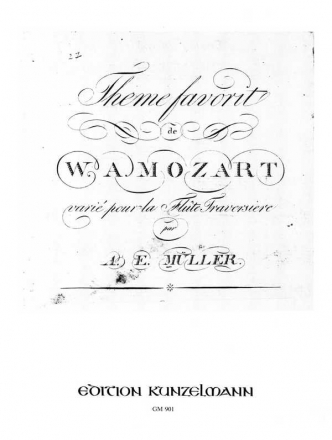 22
Theme favorit
de
W. A. MOZART
varié pour la Flûte Traversiere
par
A. E. MÜLLER.
EDITION KUNZELMANN
GM 901